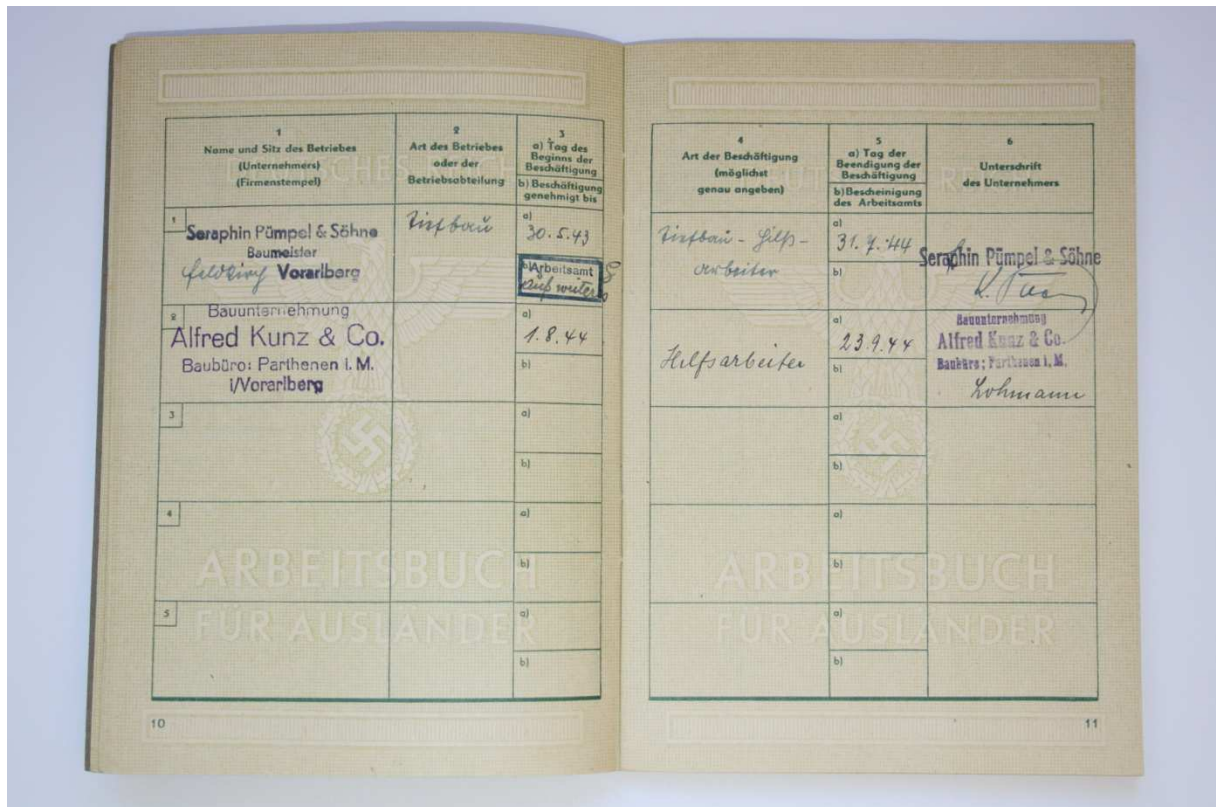 1
Name und Sitz des Betriebes
(Unternehmers)
(Firmenstempel)
2
Art des Betriebes
oder der
Betriebsabteilung
3
a) Tag des
Beginns der
Beschäftigung
b) Beschäftigung
genehmigt bis
1
Seraphin Pümpel & Söhne
Baumeister
Feldkirch Vorarlberg
Tiefbau
a)
30.5.43
b) Arbeitsamt
auf weiteres
2
Bauunternehmung
Alfred Kunz & Co.
Baubüro: Parthenen i. M.
i/Vorarlberg
a)
1.8.44
b)
3
a)
b)
4
a)
b)
5
a)
b)
DEUTSCHES REICH
ARBEITSBUCH
FÜR AUSLÄNDER
10
4
Art der Beschäftigung
(möglichst
genau angeben)
5
a) Tag der
Beendigung der
Beschäftigung
b) Bescheinigung
des Arbeitsamts
6
Unterschrift
des Unternehmers
Tiefbau - Hilfs-
arbeiter
a)
31.7.44
b)
Seraphin Pümpel & Söhne
Hilfsarbeiter
a)
23.9.44
b)
Bauunternehmung
Alfred Kunz & Co.
Baubüro: Parthenen i. M.
Lohmann
a)
b)
a)
b)
a)
b)
ARBEITSBUCH
FÜR AUSLÄNDER
11